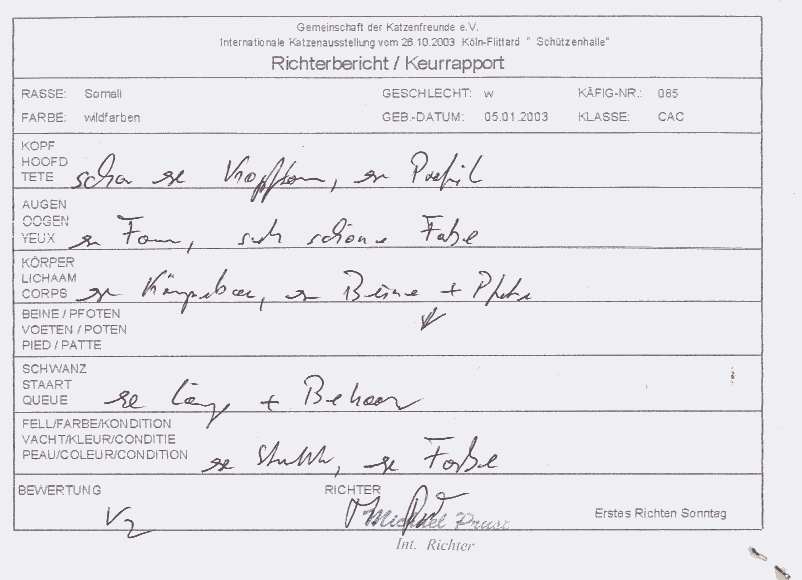 Gemeinschaft der Katzenfreunde e.V.
Internationale Katzenausstellung vom 26.10.2003 Köln-Flittard " Schützenhalle"
Richterbericht / Keurrapport
RASSE: Somali GESCHLECHT: w KÄFIG-NR.: 085
FARBE: wildfarben GEB.-DATUM: 05.01.2003 KLASSE: CAC
KOPF
HOOFD
TETE Kopfform, Profil
AUGEN
OOGEN
YEUX Form, sehr schöne Farbe
KÖRPER
LICHAAM
CORPS Körperbau, Beine + Pfote
BEINE / PFOTEN
VOETEN / POTEN
PIED / PATTE
SCHWANZ
STAART
QUEUE Länge + Behaar
FELL/FARBE/KONDITION
VACHT/KLEUR/CONDITIE
PEAU/COLEUR/CONDITION Farbe
BEWERTUNG RICHTER
V2 Michael Prust Erstes Richten Sonntag
Int. Richter